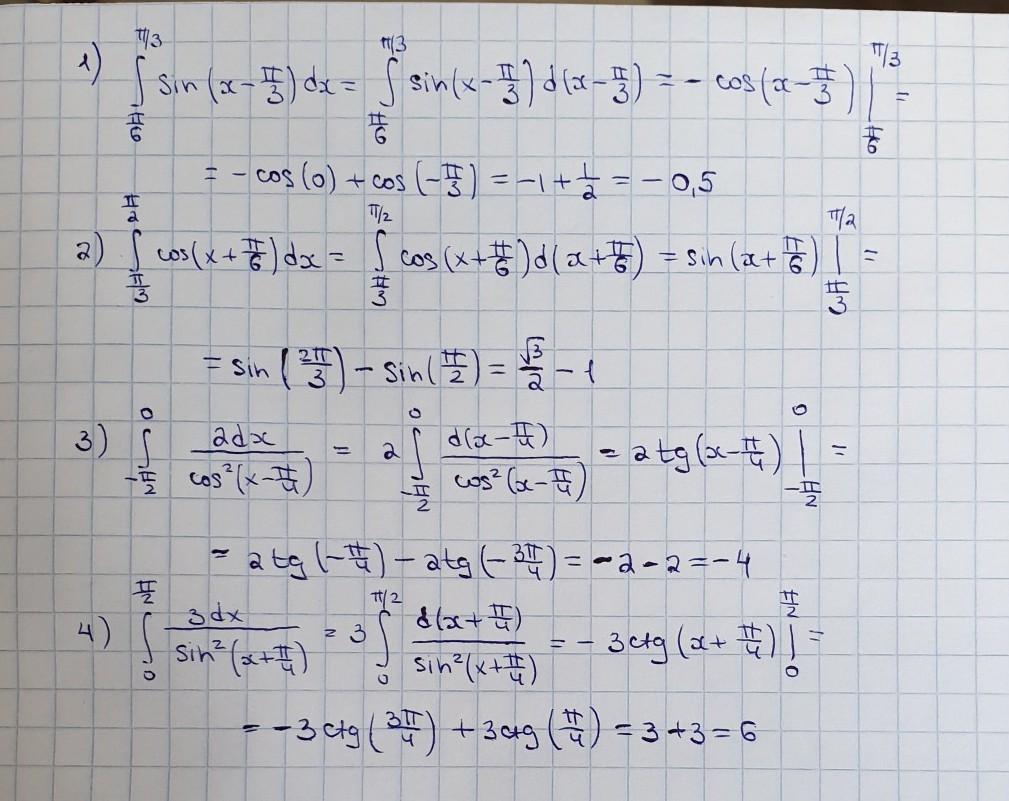 1) ∫_{π/6}^{π/3} sin(x-π/3)dx = ∫_{π/6}^{π/3} sin(x-π/3)d(x-π/3) = - cos(x-π/3)|_{π/6}^{π/3} =
= -cos(0) + cos(-π/3) = -1 + 1/2 = -0,5
2) ∫_{π/3}^{π/2} cos(x+π/6)dx = ∫_{π/3}^{π/2} cos(x+π/6)d(x+π/6) = sin(x+π/6)|_{π/3}^{π/2} =
= sin(2π/3) - sin(π/2) = √3/2 - 1
3) ∫_{-π/2}^{0} 2dx/cos²(x-π/4) = 2∫_{-π/2}^{0} d(x-π/4)/cos²(x-π/4) = 2tg(x-π/4)|_{-π/2}^{0} =
= 2tg(-π/4) - 2tg(-3π/4) = -2-2 = -4
4) ∫_{0}^{π/2} 3dx/sin²(x+π/4) = 3∫_{0}^{π/2} d(x+π/4)/sin²(x+π/4) = -3ctg(x+π/4)|_{0}^{π/2} =
= -3ctg(3π/4) + 3ctg(π/4) = 3+3 = 6